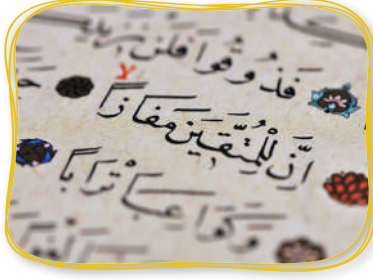 فَذُوقُوا فَلَن نَّزِيدَ
لا
إِنَّ لِلْمُتَّقِينَ مَفَازًا
وَكَوَاعِبَ أَتْرَابًا